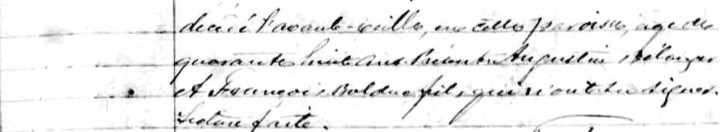 décédé l'avant-veille, en cette paroisse, agé de
quarante huit ans. Présents Augustin Bélanger
et François Bolduc fils, qui n'ont su signer.
Lecture faite.